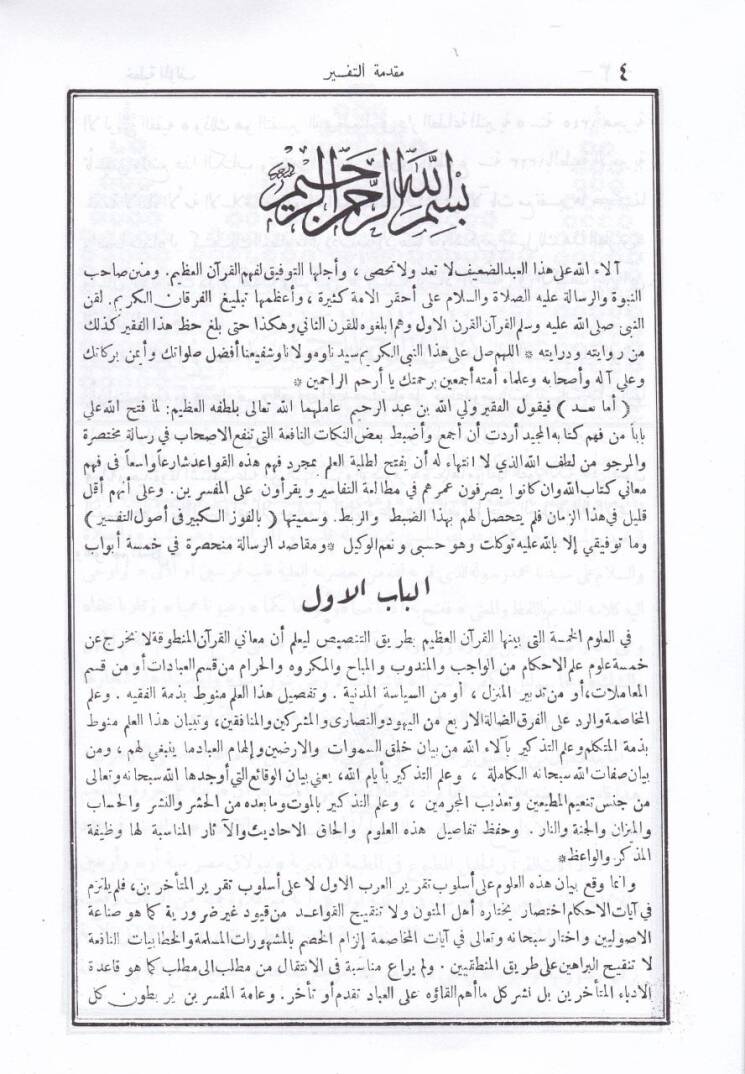 ٤
مقدمة التفسير
بسم الله الرحمن الرحيم
آلاء الله على هذا العبد الضعيف لا تعد ولا تحصى ، وأجلها التوفيق لفهم القرآن العظيم. ومنن صاحب
النبوة والرسالة عليه الصلاة والسلام على أحقر الامة كثيرة ، وأعظمها تبليغ الفرقان الكريم. لقن
النبي صلى الله عليه وسلم القرآن القرن الاول وهم أبلغوه للقرن الثاني وهكذا حتى بلغ حظ هذا الفقير كذلك
من روايته ودرايته * اللهم صل على هذا النبي الكريم سيدنا ومولانا وشفيعنا أفضل صلواتك وأيمن بركاتك
وعلي آله وأصحابه وعلماء أمته أجمعين برحمتك يا أرحم الراحمين *
( أما بعد ) فيقول الفقير ولي الله بن عبد الرحيم عاملهما الله تعالى بلطفه العظيم: لما فتح الله علي
بابا من فهم كتابه المجيد أردت أن أجمع وأضبط بعض النكات النافعة التى تنفع الاصحاب في رسالة مختصرة
والمرجو من لطف الله الذي لا انتهاء له أن يفتح لطلبة العلم بمجرد فهم هذه القواعد شارعا واسعا في فهم
معاني كتاب الله وان كانوا يصرفون عمرهم في مطالعة التفاسير ويقرأون على المفسرين. وعلى أنهم أقل
قليل في هذا الزمان فلم يتحصل لهم بهذا الضبط والربط. وسميتها ( بالفوز الكبير فى أصول التفسير )
وما توفيقي إلا بالله عليه توكلت وهو حسبى ونعم الوكيل * ومقاصد الرسالة منحصرة في خمسة أبواب
الباب الاول
في العلوم الخمسة التى بينها القرآن العظيم بطريق التنصيص ليعلم أن معاني القرآن المنطوقة لا تخرج عن
خمسة علوم علم الاحكام من الواجب والمندوب والمباح والمكروه والحرام من قسم العبادات أو من قسم
المعاملات، أو من تدبير المنزل ، أو من السياسة المدنية . وتفصيل هذا العلم منوط بذمة الفقيه . وعلم
المخاصمة والرد على الفرق الضالة الاربع من اليهود والنصارى والمشركين والمنافقين، وتبيان هذا العلم منوط
بذمة المتكلم وعلم التذكير بآلاء الله من بيان خلق السموات والارضين وإلهام العباد ما ينبغي لهم ، ومن
بيان صفات الله سبحانه الكاملة ، وعلم التذكير بأيام الله، يعني بيان الوقائع التي أوجدها الله سبحانه وتعالى
من جنس تنعيم المطيعين وتعذيب المجرمين ، وعلم التذكير بالموت وما بعده من الحشر والنشر والحساب
والميزان والجنة والنار . وحفظ تفاصيل هذه العلوم والحاق الاحاديث والآثار المناسبة لها وظيفة
المذكر والواعظ*
وانما وقع بيان هذه العلوم على أسلوب تقرير العرب الاول لا على أسلوب تقرير المتأخرين، فلم يلتزم
في آيات الاحكام اختصار يختاره أهل المتون ولا تنقيح القواعد من قيود غير ضرورية كما هو صناعة
الاصوليين واختار سبحانه وتعالى في آيات المخاصمة إلزام الخصم بالمشهورات المسلمة والخطابيات النافعة
لا تنقيح البراهين على طريق المنطقيين . ولم يراع مناسبة فى الانتقال من مطلب الى مطلب كما هو قاعدة
الادباء المتأخرين بل نشر كل ما أهم القاؤه على العباد تقدم أو تأخر. وعامة المفسرين يربطون كل